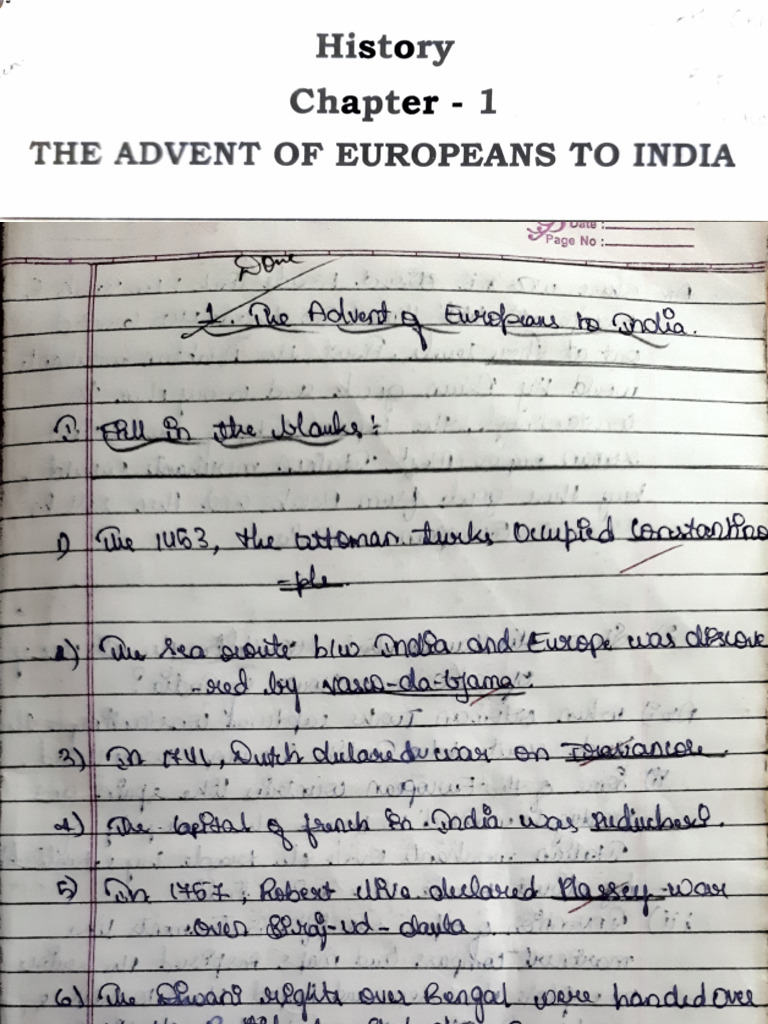 History
Chapter - 1
THE ADVENT OF EUROPEANS TO INDIA
Date :
Page No :
Done
1. The Advent of Europeans to India.
I. Fill in the blanks :
1) The 1453, the ottoman turks occupied constantino
-ple.
2) The sea route b/w India and Europe was discove
-red by vasco-da-Gama.
3) In 1741, Dutch declared war on Travancore.
4) The capital of french in India was Puducherri.
5) In 1757, Robert clive declared Plassey war
over Siraj-ud-daula
6) The Diwani rights over Bengal were handed over